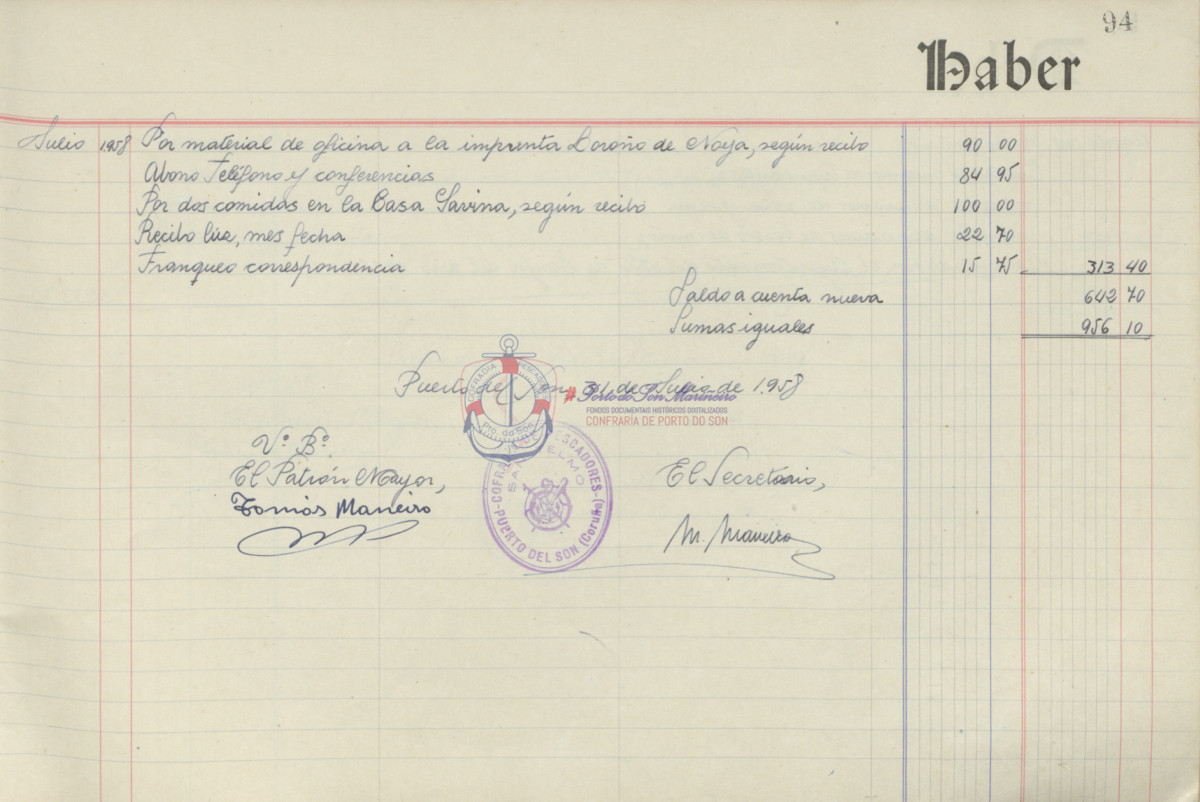 94
Haber
Julio 1.958 Por material de oficina a la imprenta Loroño de Noya, según recibo 90 00
Abono Teléfono y conferencias 84 95
Por dos comidas en la Casa Savina, según recibo 100 00
Recibo lúz, mes fecha 22 70
Franqueo correspondencia 15 75 313 40
Saldo a cuenta nueva 642 70
Sumas iguales 956 10
Puerto del Son, 31 de Julio de 1.958
#Porto do Son Mariñeiro
FONDOS DOCUMENTAIS HISTÓRICOS DIXITALIZADOS
CONFRARÍA DE PORTO DO SON
COFRADIA PESCADORES
Pto. do Son
Vº Bº
El Patrón Mayor,
Tomás Maneiro
COFRADIA PESCADORES
SAN TELMO
PUERTO DEL SON (Coruña)
El Secretario,
M. Maneiro